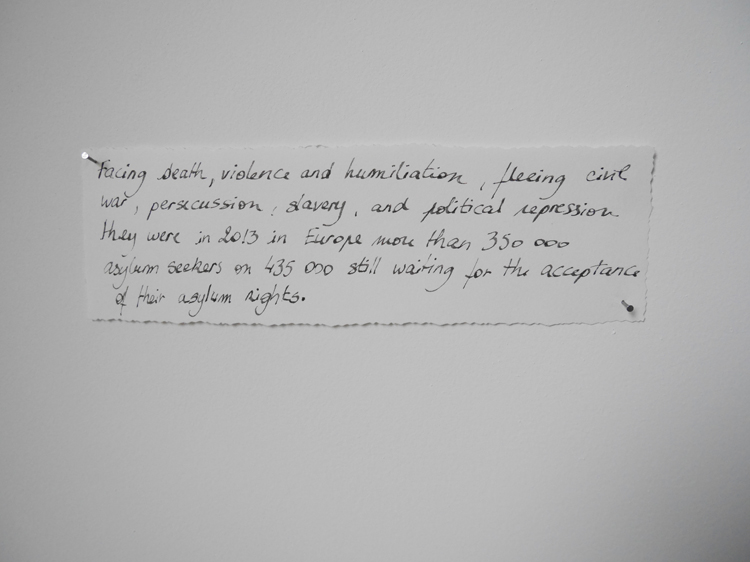 Facing death, violence and humiliation, fleeing civil
war, persecussion, slavery, and political repression
they were in 2013 in Europe more than 350 000
asylum seekers on 435 000 still waiting for the acceptance
of their asylum rights.